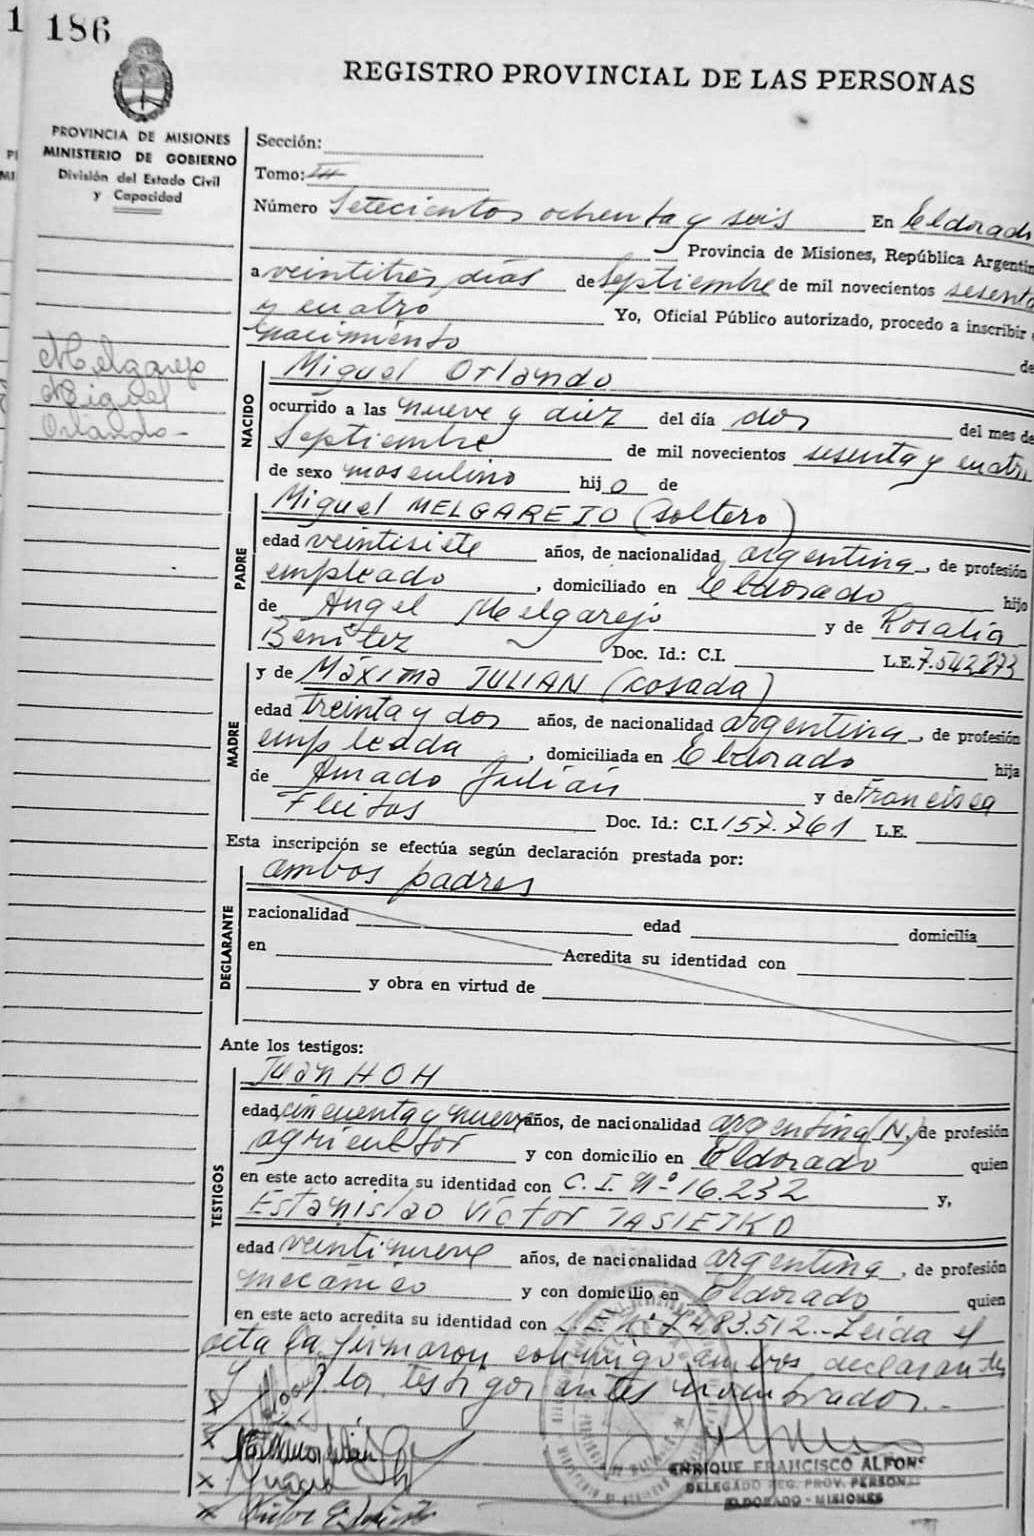 1 186
REGISTRO PROVINCIAL DE LAS PERSONAS
PROVINCIA DE MISIONES
MINISTERIO DE GOBIERNO
División del Estado Civil
y Capacidad
Melgarejo
Miguel
Orlando-
Sección:
Tomo:
Número Setecientos ochenta y seis En Eldorado
Provincia de Misiones, República Argentin
a veintitrés días de Septiembre de mil novecientos sesenta
y cuatro Yo, Oficial Público autorizado, procedo a inscribir e
nacimiento de
NACIDO
Miguel Orlando
ocurrido a las nueve y diez del día dos del mes de
Septiembre de mil novecientos sesenta y cuatro
de sexo masculino hijo de
PADRE
Miguel MELGAREJO (soltero)
edad veintisiete años, de nacionalidad argentina, de profesión
empleado, domiciliado en Eldorado hijo
de Angel Melgarejo y de Rosalia
Benitez Doc. Id.: C.I. L.E. 7.542.873
MADRE
y de Máxima JULIAN (casada)
edad treinta y dos años, de nacionalidad argentina, de profesión
empleada, domiciliada en Eldorado hija
de Amado Julián y de Francisca
Fleitas Doc. Id.: C.I. 157.761 L.E.
Esta inscripción se efectúa según declaración prestada por:
DECLARANTE
ambos padres
nacionalidad edad domicilia
en Acredita su identidad con
y obra en virtud de
Ante los testigos:
TESTIGOS
Juan HOH
edad cincuenta y nueve años, de nacionalidad argentina (N.) de profesión
agricultor y con domicilio en Eldorado quien
en este acto acredita su identidad con C. I. Nº 16.232 y,
Estanislao Víctor TASIETKO
edad veintinueve años, de nacionalidad argentina, de profesión
mecánico y con domicilio en Eldorado quien
en este acto acredita su identidad con L.E. Nº 7.483.512.- Leida el
acta la firmaron conmigo ambos declarantes
y los testigos antes nombrados.-
ENRIQUE FRANCISCO ALFONS
DELEGADO REG. PROV. PERSONA
ELDORADO - MISIONES